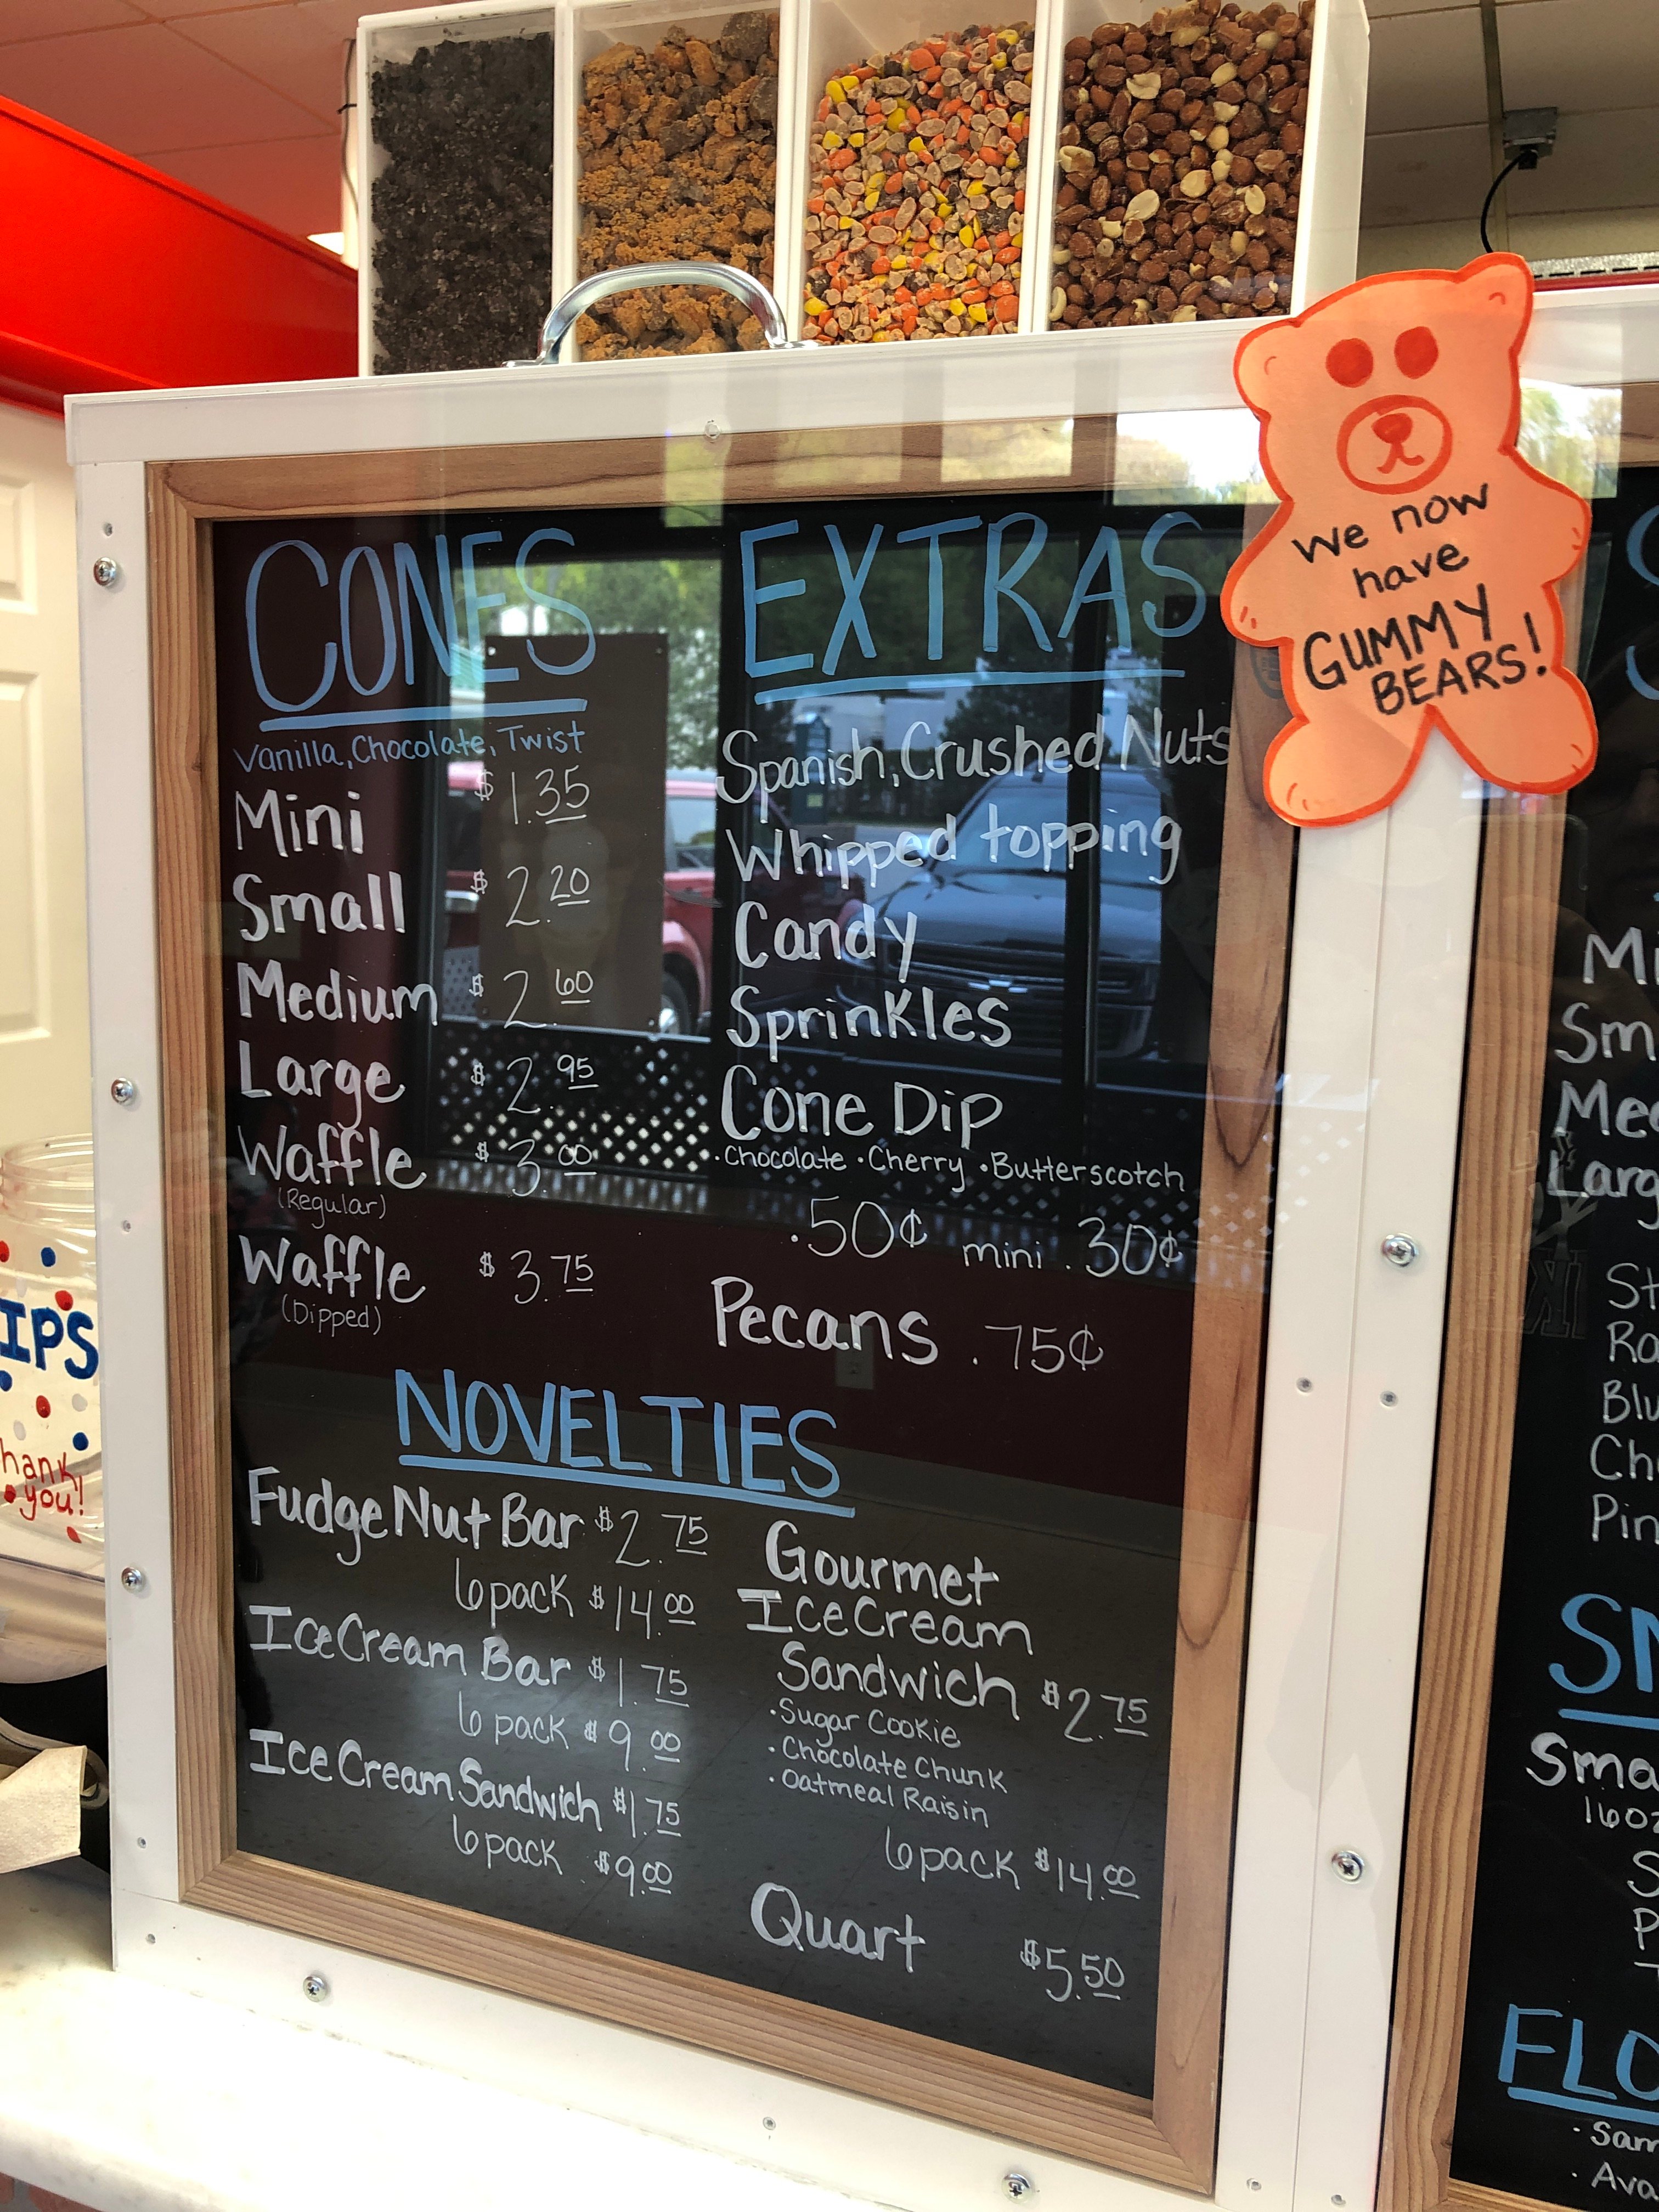 CONES
Vanilla, Chocolate, Twist
Mini $1.35
Small $2.20
Medium $2.60
Large $2.95
Waffle $3.00
(Regular)
Waffle $3.75
(Dipped)
EXTRAS
Spanish, Crushed Nuts
Whipped topping
Candy
Sprinkles
Cone Dip
·Chocolate ·Cherry ·Butterscotch
.50¢ mini .30¢
Pecans .75¢
NOVELTIES
Fudge Nut Bar $2.75
6 pack $14.00
Ice Cream Bar $1.75
6 pack $9.00
Ice Cream Sandwich $1.75
6 pack $9.00
Gourmet
Ice Cream
Sandwich $2.75
·Sugar Cookie
·Chocolate Chunk
·Oatmeal Raisin
6 pack $14.00
Quart $5.50
We now
have
GUMMY
BEARS!
you!